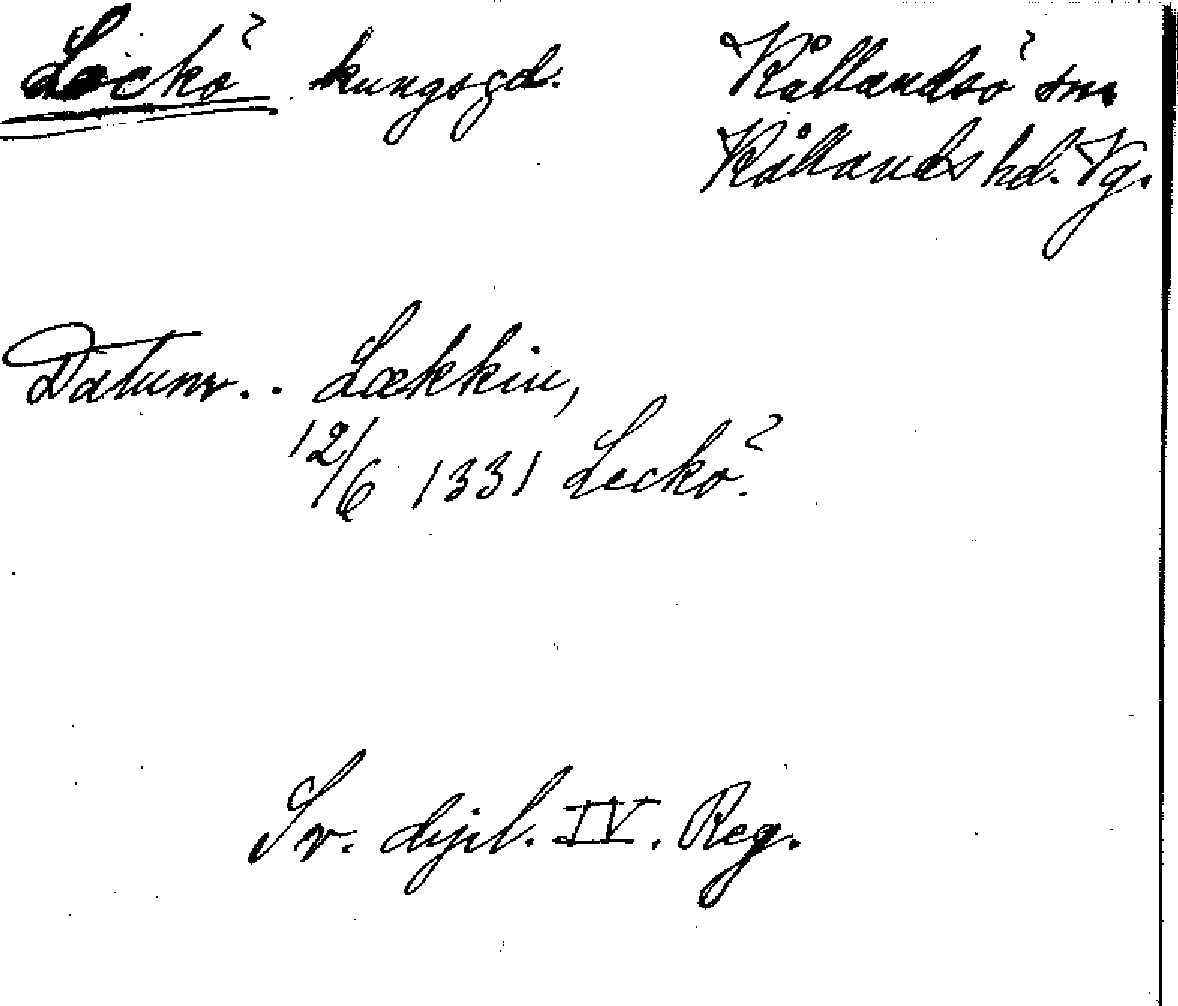 Leckö kungsgd. Kållandsö sn.
Kållands hd. Vg.
Datum. . Lækkiu,
12/6 1331 Leckö.
Sv. dipl. IV. Reg.